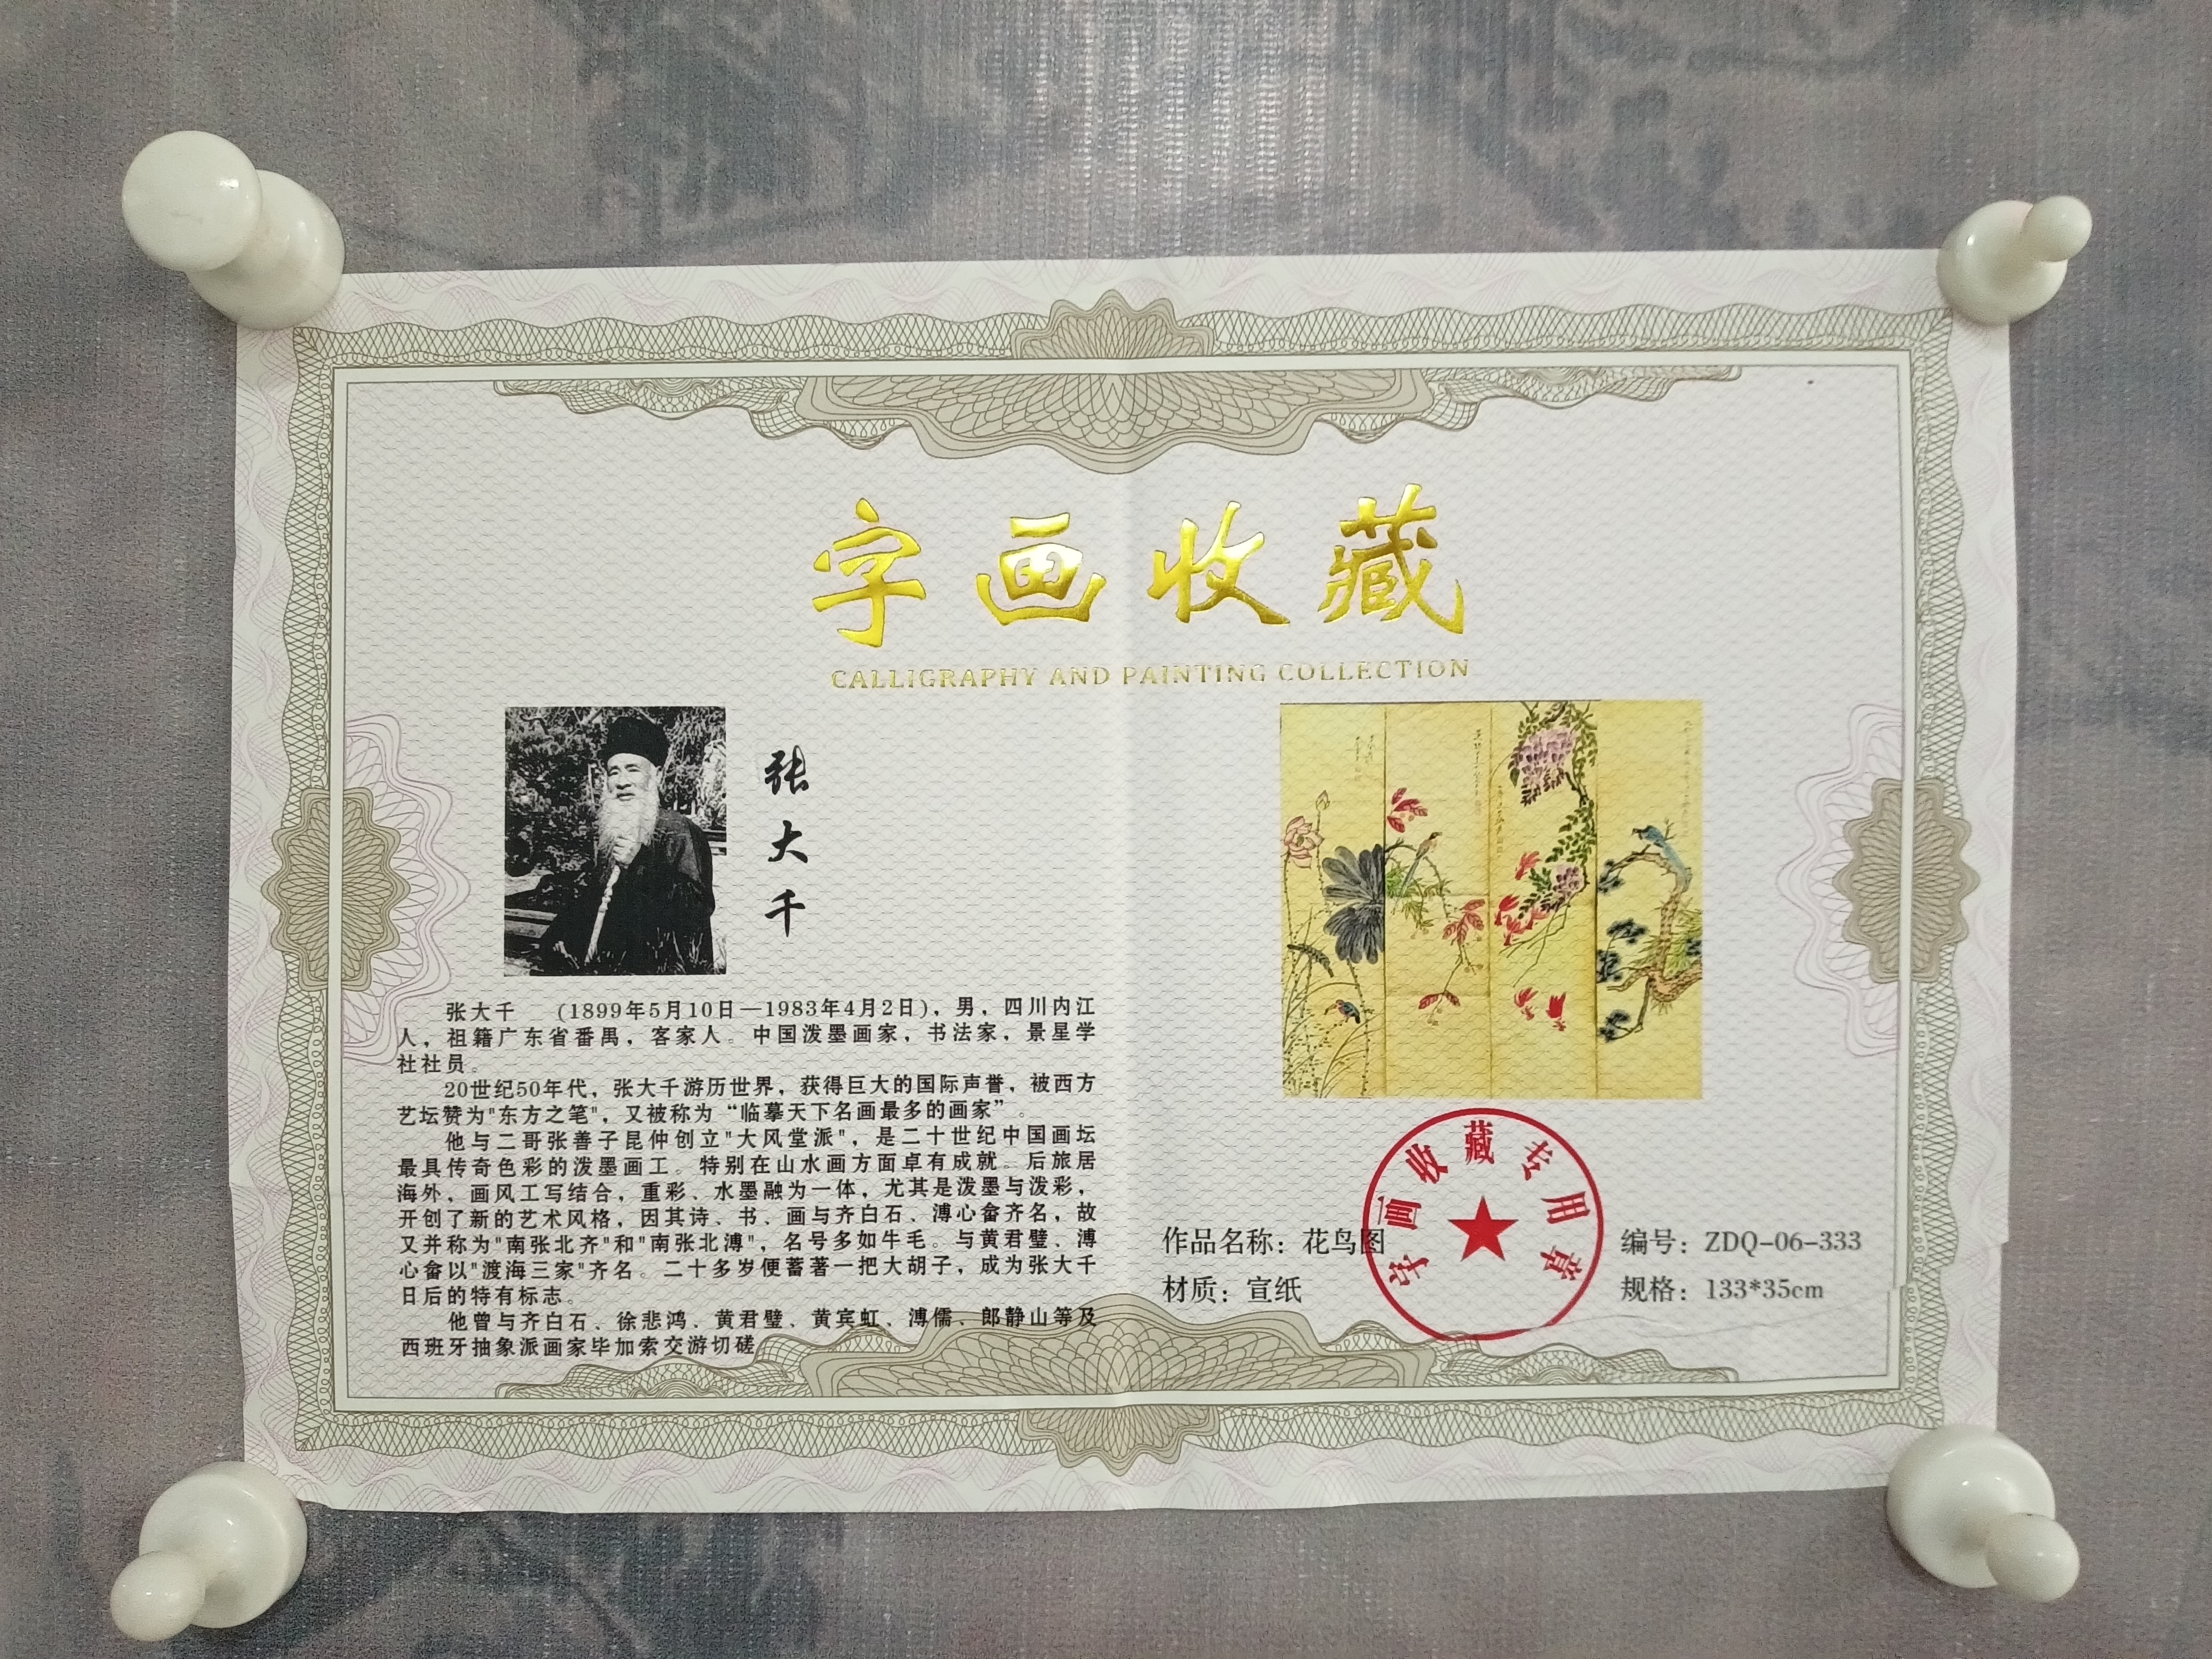 字画收藏
CALLIGRAPHY AND PAINTING COLLECTION
张大千
张大千 (1899年5月10日—1983年4月2日)，男，四川内江
人，祖籍广东省番禺，客家人。中国泼墨画家，书法家，景星学
社社员。
20世纪50年代，张大千游历世界，获得巨大的国际声誉，被西方
艺坛赞为"东方之笔"，又被称为“临摹天下名画最多的画家”。
他与二哥张善子昆仲创立"大风堂派"，是二十世纪中国画坛
最具传奇色彩的泼墨画工。特别在山水画方面卓有成就。后旅居
海外，画风工写结合，重彩、水墨融为一体，尤其是泼墨与泼彩，
开创了新的艺术风格，因其诗、书、画与齐白石、溥心畬齐名，故
又并称为"南张北齐"和"南张北溥"，名号多如牛毛。与黄君璧、溥
心畬以"渡海三家"齐名。二十多岁便蓄著一把大胡子，成为张大千
日后的特有标志。
他曾与齐白石、徐悲鸿、黄君璧、黄宾虹、溥儒、郎静山等及
西班牙抽象派画家毕加索交游切磋
字画收藏专用章
作品名称：花鸟图
编号：ZDQ-06-333
材质：宣纸
规格：133*35cm